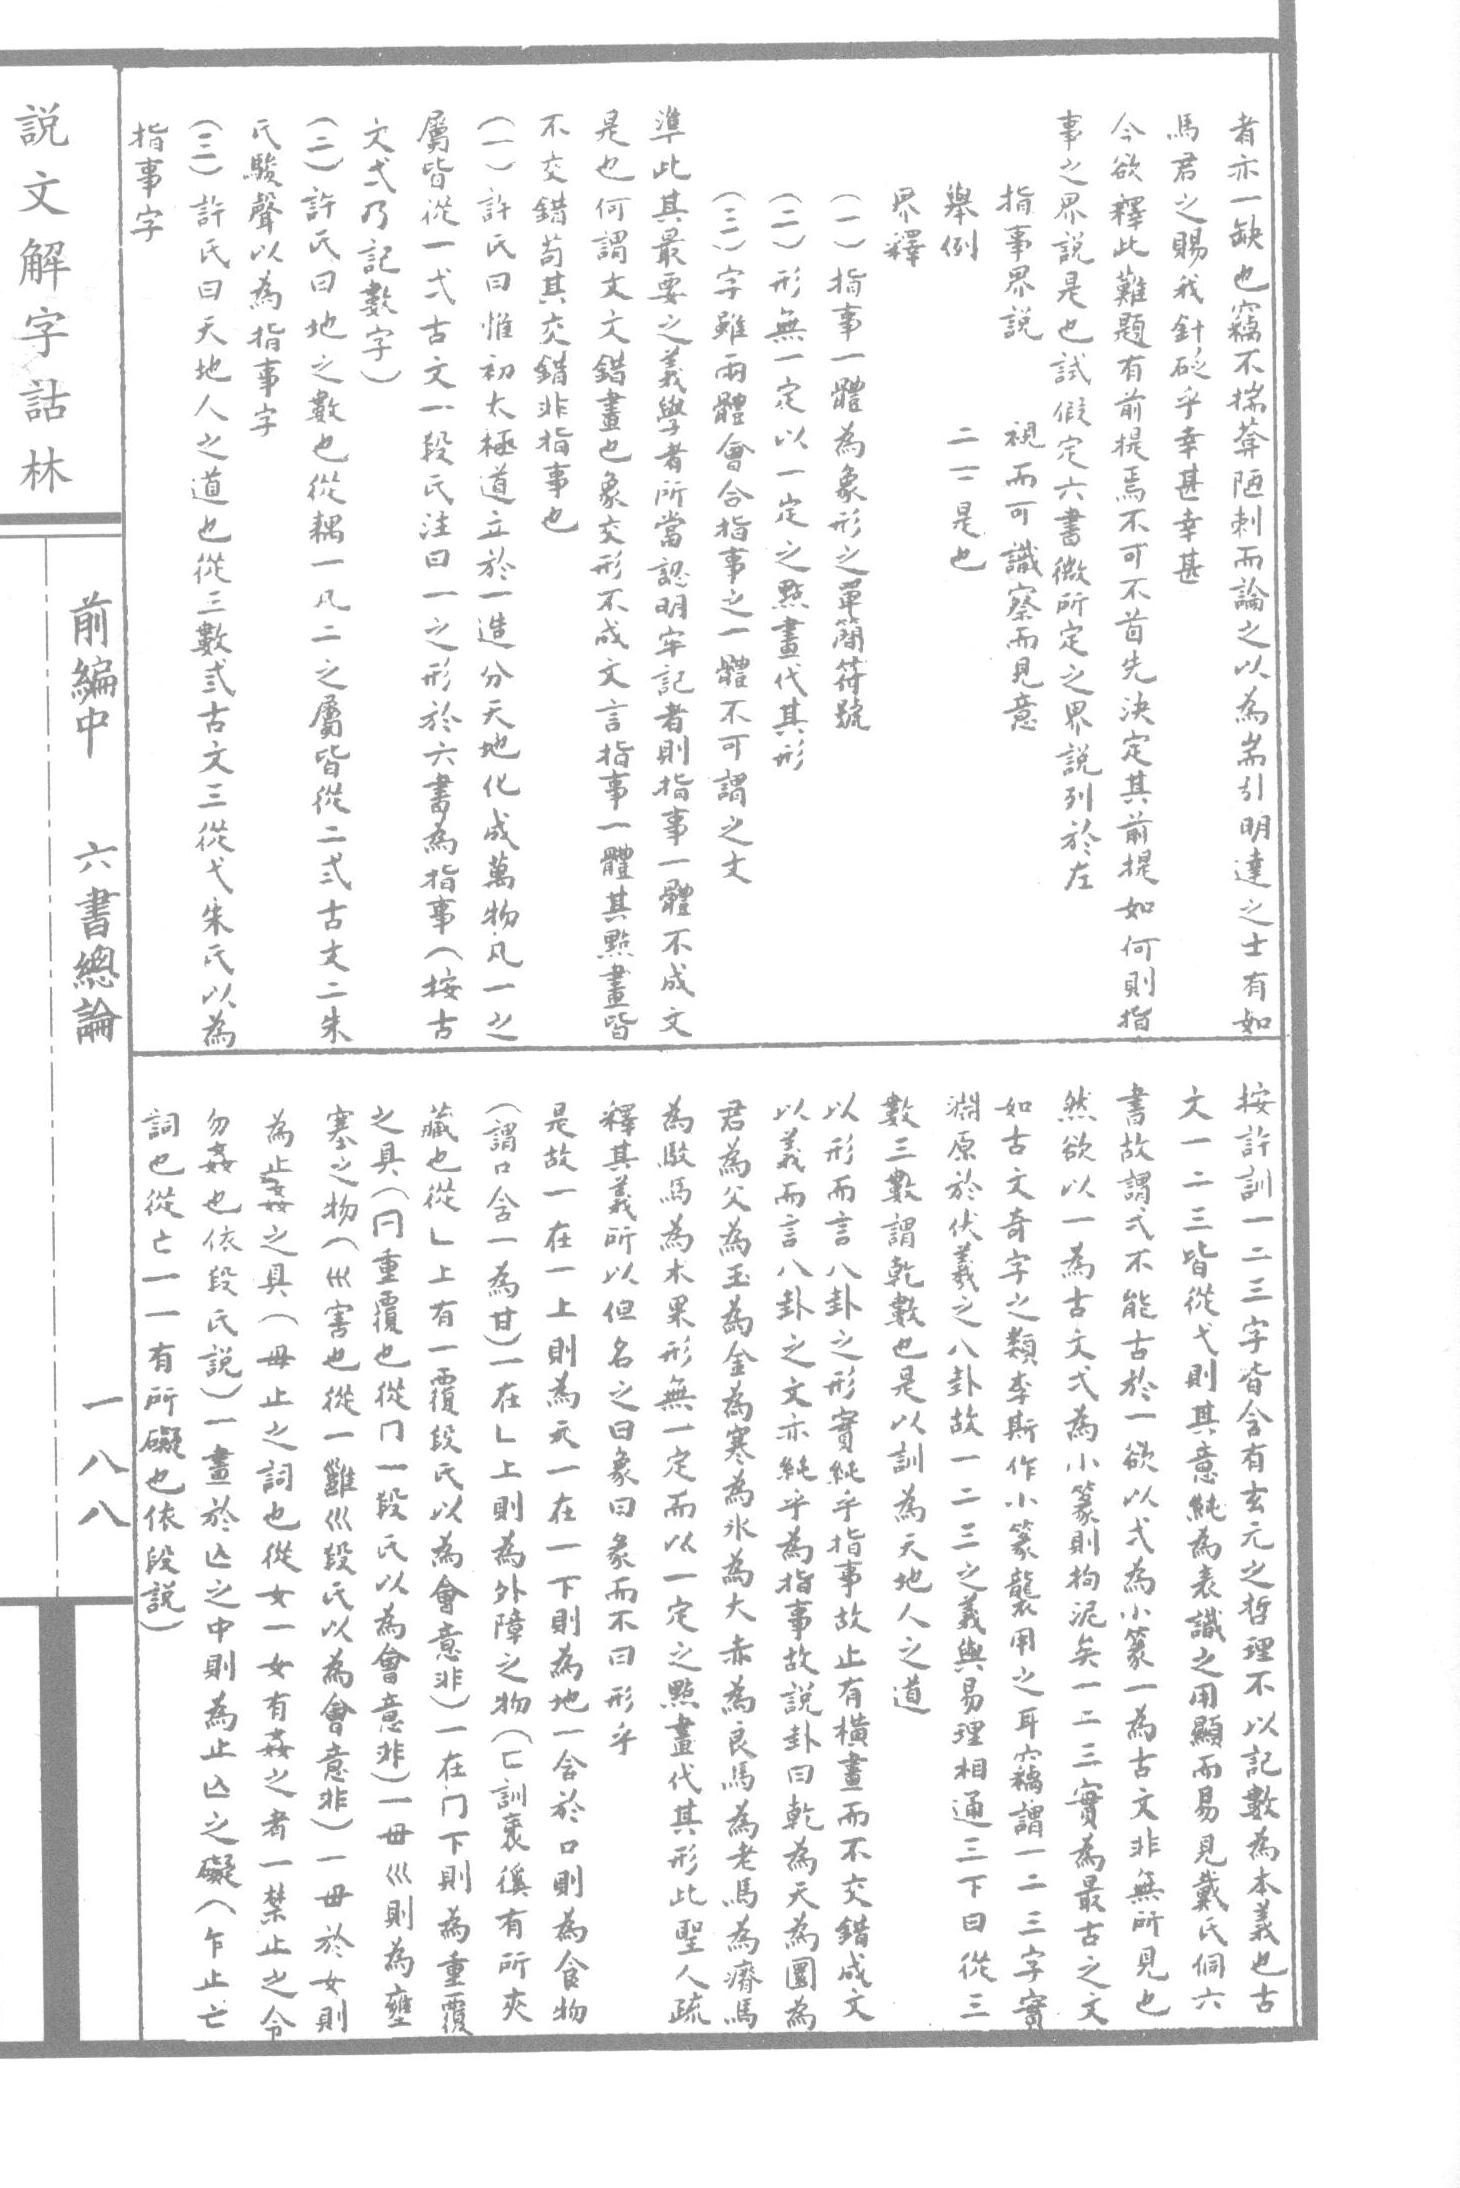 者亦一缺也竊不揣葑陋刺而論之以為耑引明達之士有如
馬君之賜我針砭乎幸甚幸甚
今欲釋此難題有前提焉不可不首先決定其前提如何則指
事之界說是也試假定六書微所定之界說列於左
指事界說 視而可識察而見意
舉例 二二是也
界釋
(一)指事一體為象形之單簡符號
(二)形無一定以一定之點畫代其形
(三)字雖兩體會合指事之一體不可謂之文
準此其最要之義學者所當認明牢記者則指事一體不成文
是也何謂文文錯畫也象交形不成文言指事一體其點畫皆
不交錯苟其交錯非指事也
(一)許氏曰惟初太極道立於一造分天地化成萬物凡一之
屬皆從一弌古文一段氏注曰一之形於六書為指事(按古
文弌乃記數字)
(二)許氏曰地之數也從耦一凡二之屬皆從二弍古文二朱
氏駿聲以為指事字
(三)許氏曰天地人之道也從三數弎古文三從弋朱氏以為
指事字
按許訓一二三字皆含有玄元之哲理不以記數為本義也古
文一二三皆從弋則其意純為表識之用顯而易見戴氏侗六
書故謂弌不能古於一欲以弌為小篆一為古文非無所見也
然欲以一為古文弌為小篆則拘泥矣一二三實為最古之文
如古文奇字之類李斯作小篆襲用之耳竊謂一二三字實
淵原於伏羲之八卦故一二三之義與易理相通三下曰從三
數三數謂乾數也是以訓為天地人之道
以形而言八卦之形實純乎指事故止有橫畫而不交錯成文
以義而言八卦之文亦純乎為指事故說卦曰乾為天為圜為
君為父為玉為金為寒為氷為大赤為良馬為老馬為瘠馬
為駁馬為木果形無一定而以一定之點畫代其形此聖人疏
釋其義所以但名之曰象曰象而不曰形乎
是故一在一上則為元一在一下則為地一含於口則為食物
(謂口含一為甘)一在乚上則為外障之物(匸訓衺徯有所夾
藏也從乚上有一覆段氏以為會意非)一在冂下則為重覆
之具(冃重覆也從冂一段氏以為會意非)一毌巛則為壅
塞之物(𡿧害也從一雝巛段氏以為會意非)一毌於女則
為止姦之具(毋止之詞也從女一女有姦之者一禁止之令
勿姦也依段氏說)一畫於亾之中則為止亾之礙(乍止亡
詞也從亡一一有所礙也依段說)
說文解字詁林
前編中 六書總論
一八八